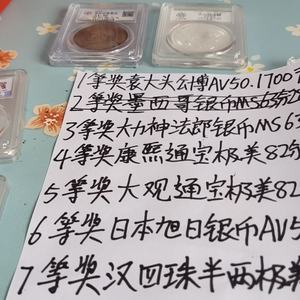 1等奖袁大头公博AV50.1700
2等奖墨西哥银币MS63
3等奖大力神法郎银币MS63
4等奖康熙通宝极美82
5等奖大观通宝极美82
6等奖日本旭日银币AV5
7等奖汉四珠半两极美